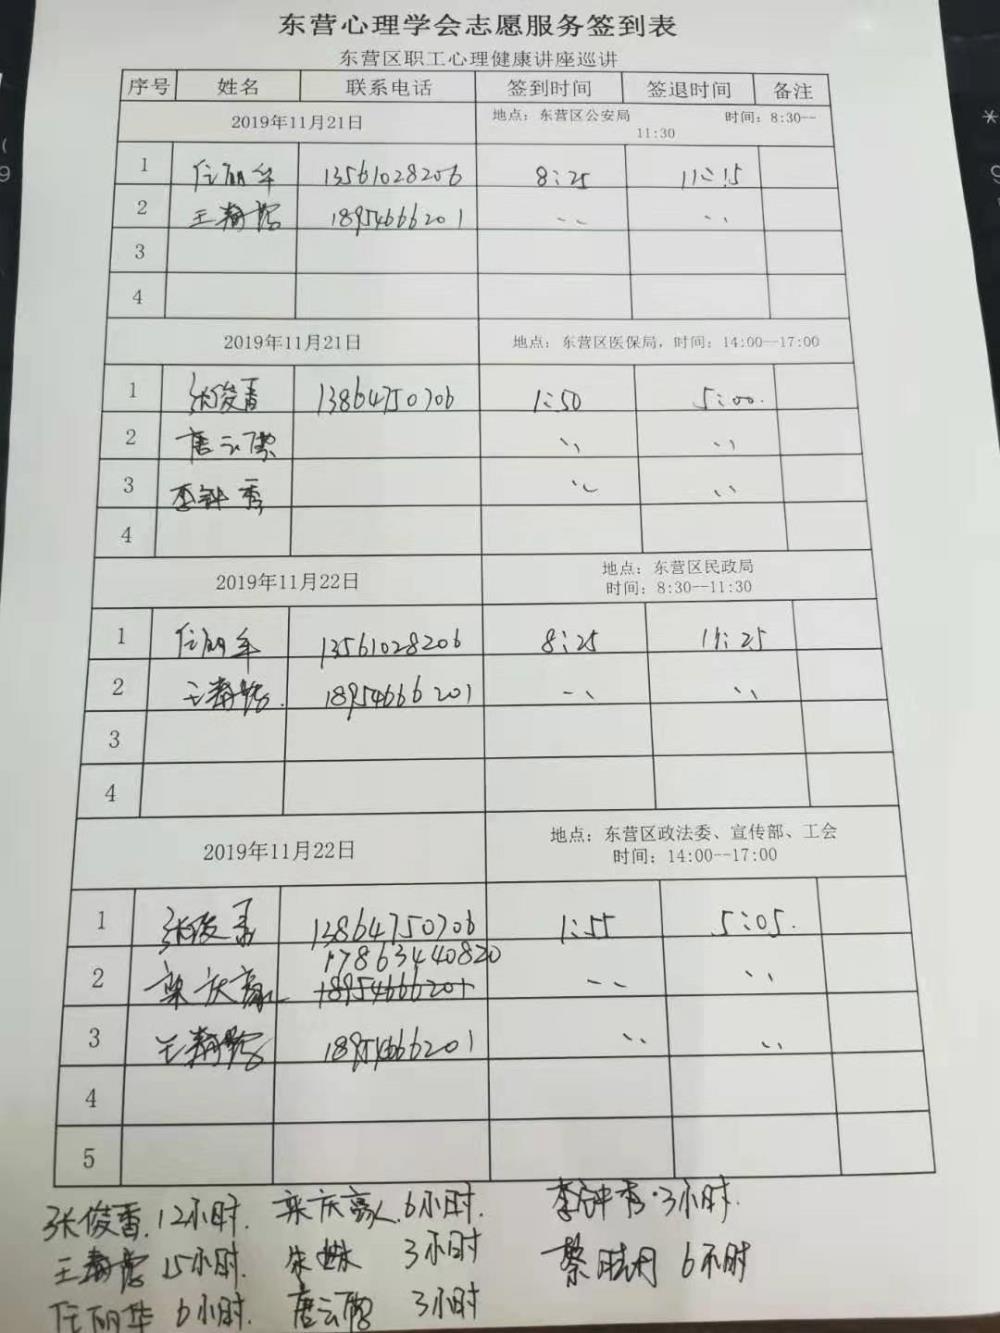 东营心理学会志愿服务签到表
东营区职工心理健康讲座巡讲
序号 姓名 联系电话 签到时间 签退时间 备注
2019年11月21日 地点：东营区公安局 时间：8:30--11:30
1 任丽华 13561028206 8:25 11:15
2 王 18954666201 、、 、、
3
4
2019年11月21日 地点：东营区医保局，时间：14:00--17:00
1 张俊香 13864750706 1:50 5:00.
2 唐云 、、 、、
3 李钟秀 、、 、、
4
2019年11月22日 地点：东营区民政局
时间：8:30--11:30
1 任丽华 13561028206 8:25 11:25
2 王 18954666201 、、 、、
3
4
2019年11月22日 地点：东营区政法委、宣传部、工会
时间：14:00--17:00
1 张俊香 13864750706 1:55 5:05.
17863440820
2 栾庆 18954666201 、、 、、
3 王 18954666201 、、 、、
4
5
张俊香.12小时. 栾庆 .6小时. 李钟秀.3小时.
王 15小时. 朱 3小时 蔡晓丹 6小时
任丽华 6小时. 唐云 3小时